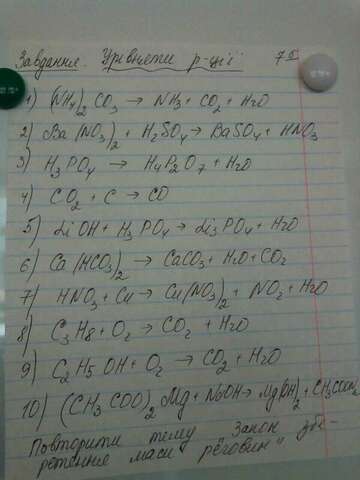 Завдання. Урівняти р-ції 7б
1) (NH4)2 CO3 → NH3 + CO2 + H2O
2) Ba(NO3)2 + H2SO4 → BaSO4 + HNO3
3) H3PO4 → H4P2O7 + H2O
4) CO2 + C → CO
5) LiOH + H3PO4 → Li3PO4 + H2O
6) Ca(HCO3)2 → CaCO3 + H2O + CO2
7) HNO3 + Cu → Cu(NO3)2 + NO2 + H2O
8) C3H8 + O2 → CO2 + H2O
9) C2H5OH + O2 → CO2 + H2O
10) (CH3COO)2Mg + NaOH → Mg(OH)2 + CH3COONa
Повторити тему "Закон збе-
реження маси речовин"